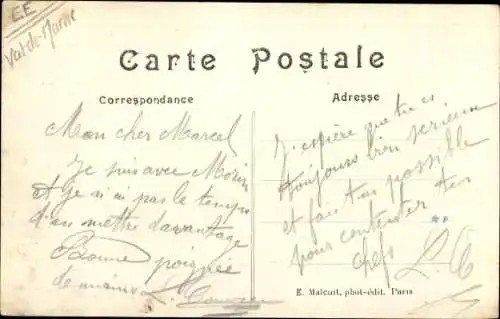 EE
Val-de-Marne
Carte Postale
Correspondance
Adresse
Mon cher Marcel
Je suis avec Morin
et je n'ai pas le temps
d'en mettre davantage
Bonne poignée
de mains L.
J'espère que tu es
toujours bien serieux
et fais ton possible
pour contenter tes
chefs L. C
E. Malcuit, phot-édit. Paris